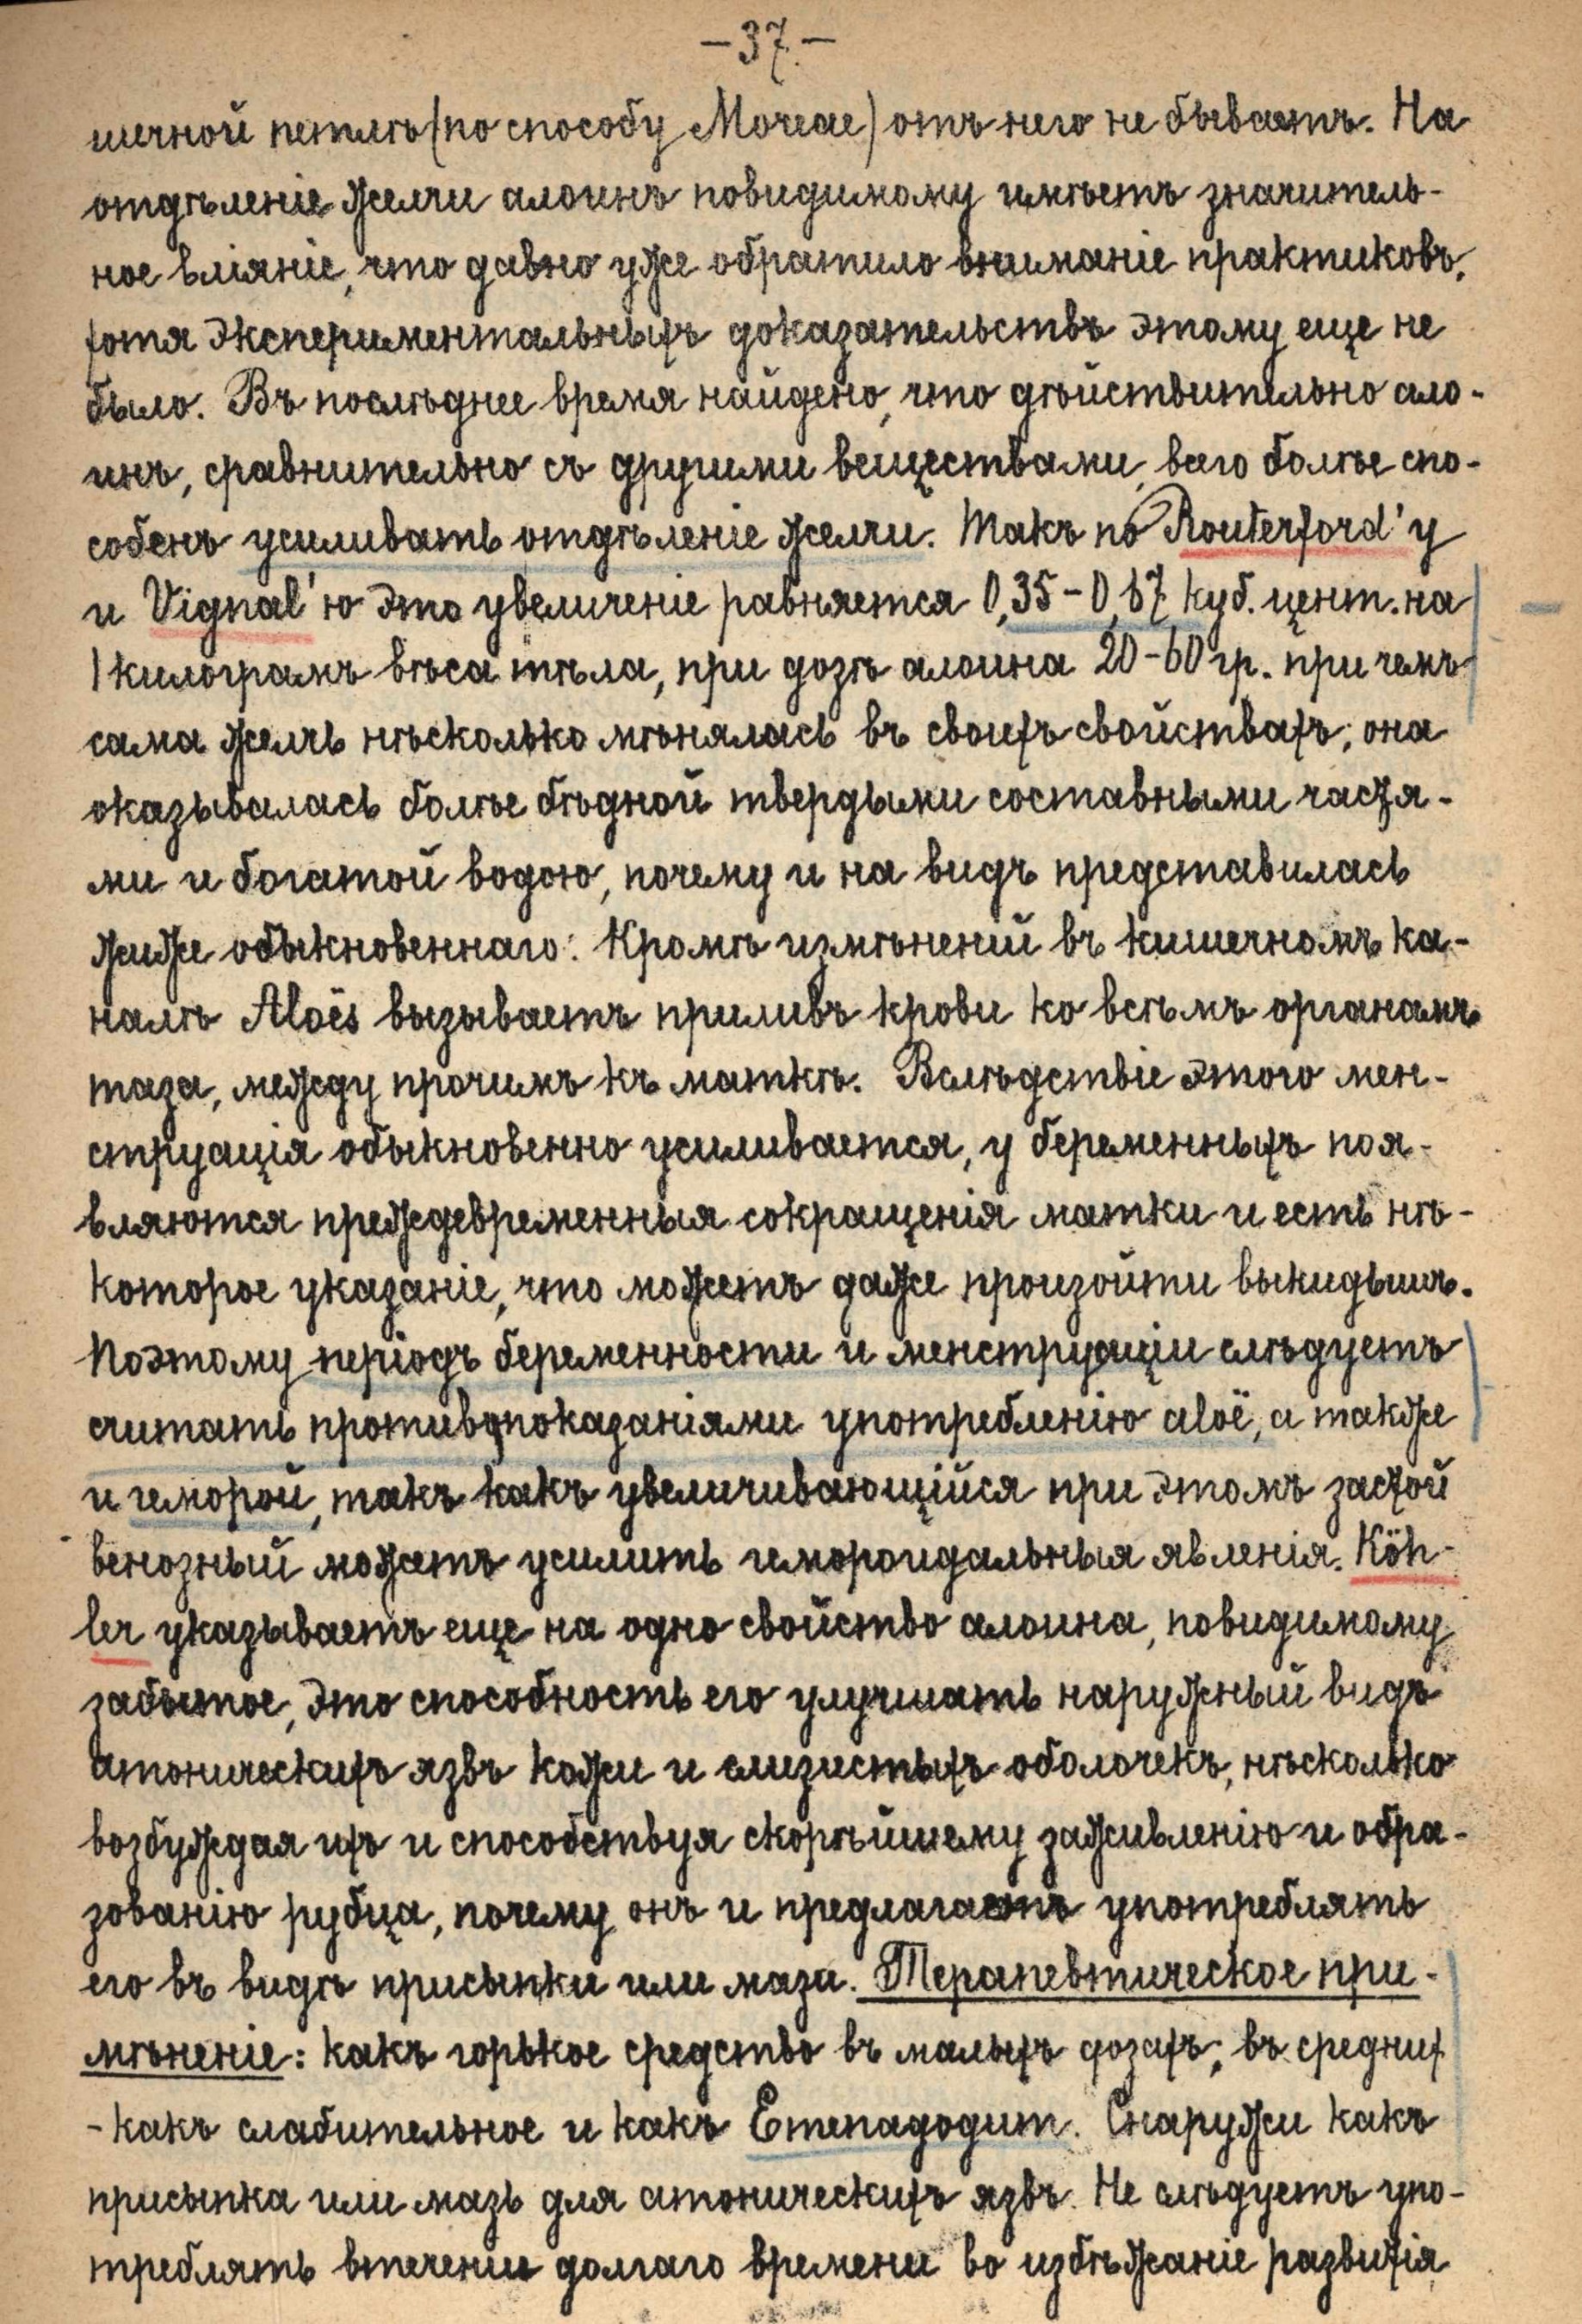 -37-
шечной петлѣ (по способу Moreae) отъ него не бываетъ. На
отдѣленіе желчи алоинъ повидимому имѣетъ значитель-
ное вліяніе, что давно уже обратило вниманіе практиковъ,
хотя экспериментальныхъ доказательствъ этому еще не
было. Въ послѣднее время найдено, что дѣйствительно ало-
инъ, сравнительно съ другими веществами, всего болѣе спо-
собенъ усиливать отдѣленіе желчи. Такъ по Routerford'у
и Vignal'ю это увеличеніе равняется 0,35-0,67 куб. цент. на
1 килограмъ вѣса тѣла, при дозѣ алоина 20-60 гр. при чемъ
сама желчь нѣсколько мѣнялась въ своихъ свойствахъ; она
оказывалась болѣе бѣдной твердыми составными частя-
ми и богатой водою, почему и на видъ представилась
жиже обыкновеннаго. Кромѣ измѣненій въ кишечномъ ка-
налѣ Aloës вызываетъ приливъ крови ко всѣмъ органамъ
таза, между прочимъ къ маткѣ. Вслѣдствіе этого мен-
струація обыкновенно усиливается, у беременныхъ поя-
вляются преждевременныя сокращенія матки и есть нѣ-
которое указаніе, что можетъ даже произойти выкидышъ.
Поэтому періодъ беременности и менструаціи слѣдуетъ
считать противопоказаніями употребленію aloë, а также
и геморой, такъ какъ увеличивающійся при этомъ застой
венозный можетъ усилить гемороидальныя явленія. Köh-
ler указываетъ еще на одно свойство алоина, повидимому
забытое, это способность его улучшать наружный видъ
атоническихъ язвъ кожи и слизистыхъ оболочекъ, нѣсколько
возбуждая ихъ и способствуя скорѣйшему заживленію и обра-
зованію рубца, почему онъ и предлагаетъ употреблять
его въ видѣ присыпки или мази. Терапевтическое при-
мѣненіе: какъ горькое средство въ малыхъ дозахъ; въ среднихъ
- какъ слабительное и какъ Emenagogum. Снаружи какъ
присыпка или мазь для атоническихъ язвъ. Не слѣдуетъ упо-
треблять втеченіи долгаго времени во избѣжаніе развитія